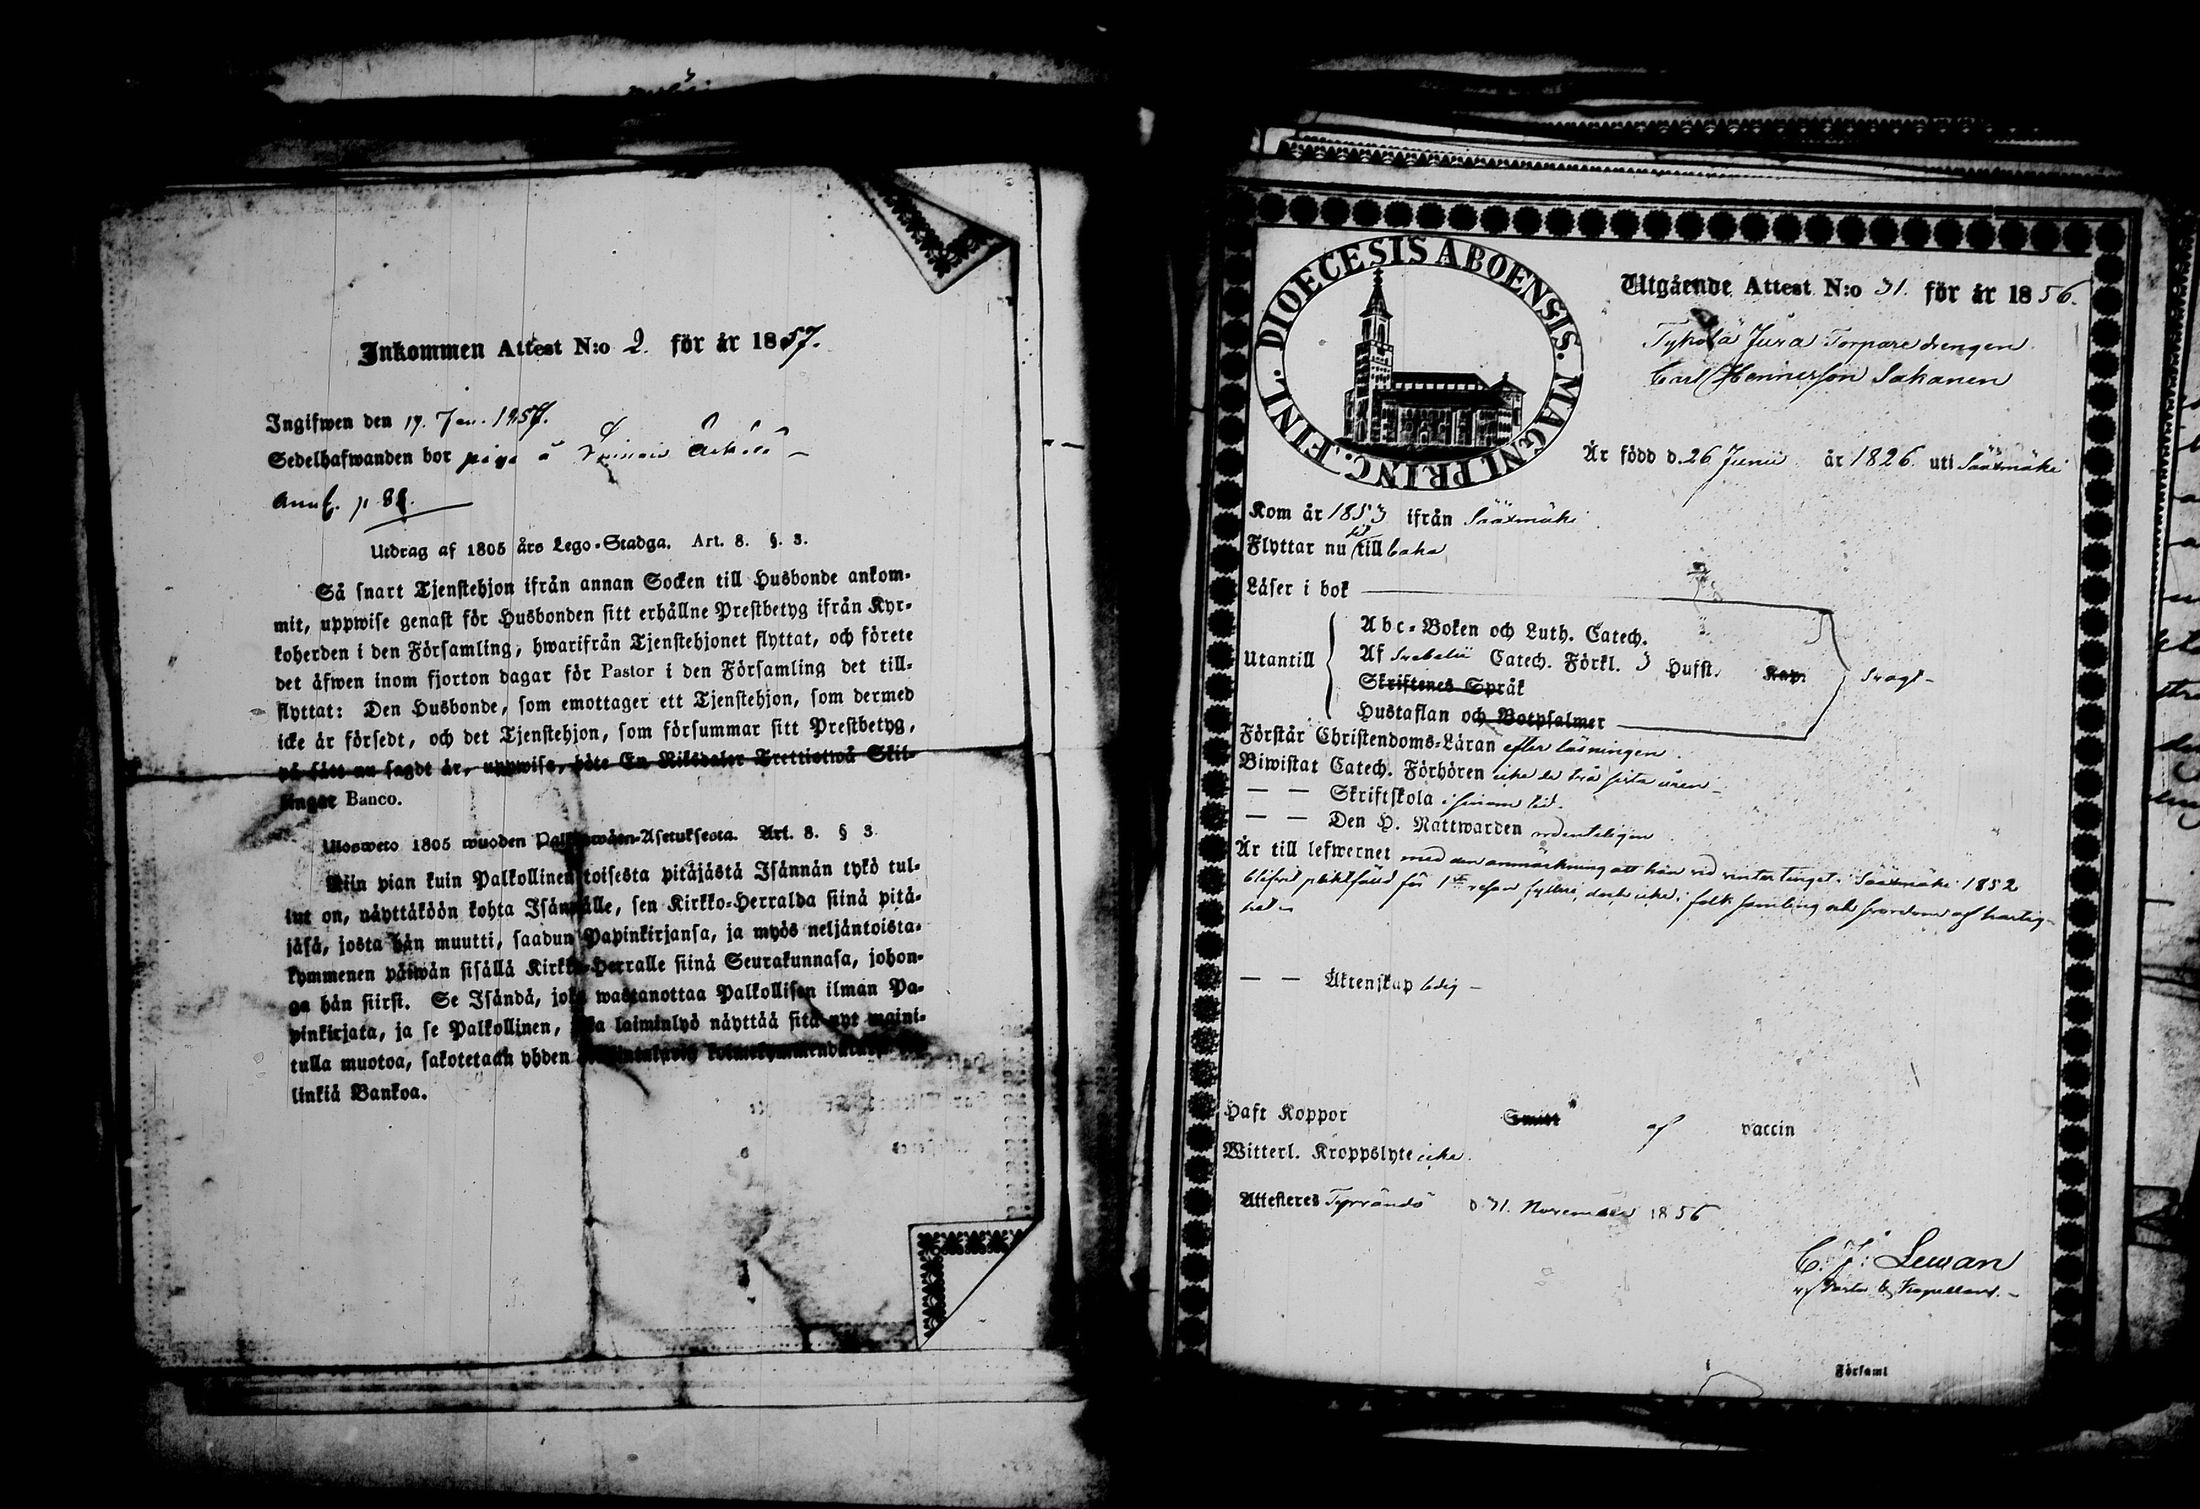 Inkommen Attest N:o 2. för år 1857.
Ingifwen den 19. Jan. 1857.
Sedelhafwanden bor piga å
Ann. p. 88.
Utdrag af 1805 års Lego-Stadga. Art. 8. §. 3.
Så snart Tjenstehjon ifrån annan Socken till Husbonde ankom-
mit, uppwise genast för Husbonden sitt erhållne Prestbetyg ifrån Kyr-
koherden i den Församling, hwarifrån Tjenstehjonet flyttat, och förete
det äfwen inom fjorton dagar för Pastor i den Församling det till-
flyttat: Den Husbonde, som emottager ett Tjenstehjon, som dermed
icke är försedt, och det Tjenstehjon, som försummar sitt Prestbetyg,
på sätt nu sagdt är, uppwisa, böte En Riksdaler Trettiotwå Skil-
lingar Banco.
Ulosweto 1805 wuoden Palkkawäen-Asetuksesta. Art. 8. § 3.
Niin pian kuin Palkollinen toisesta pitäjästä Isännän tykö tul-
lut on, näyttäköön kohta Isännälle, sen Kirkko-Herralda siinä pitä-
jäsä, josta hän muutti, saadun Papinkirjansa, ja myös neljäntoista-
kymmenen päiwän sisällä Kirkko-Herralle siinä Seurakunnasa, johon-
ga hän siirsi. Se Isändä, joka wastanottaa Palkollisen ilman Pa-
pinkirjata, ja se Palkollinen, joka laiminlyö näyttää sitä nyt maini-
tulla muotoa, sakotetaan yhden
linkiä Bankoa.
DIOECESIS ABOENSIS. MAGNI PRINC. FINL.
Utgående Attest N:o 31. för år 1856.
Tykölä Jura Torparedrengen
Carl Hennersson Sakanen
Är född d. 26 Junii år 1826. uti Sääxmäki
Kom år 1853 ifrån Sääxmäki
Flyttar nu till baka
Läser i bok
Abc-Boken och Luth. Catech.
Utantill Af Svebelii Catech. Förkl. 3 Hufst. Kap. svagt
Skriftenes Språk
Hustaflan och Botpsalmer
Förstår Christendoms-Läran efter läsningen.
Biwistat Catech. Förhören icke de två sista åren
— — Skriftskola i sinom tid.
— — Den H. Nattwarden ordenteligen
Är till lefwernet med den anmärkning att han vid vintertinget i Sääxmäki 1852
blifvit pliktfäld för 1:a resan fylleri, dock icke i folksamling och svordom af hastig-
het
— — Äktenskap ledig
Haft Koppor Smitt af vaccin
Witterl. Kroppslyte icke.
Attesteres Tyrvändö d. 31. November 1856
C. J. Lewan
v. Pastor & Kapellans.
Församl